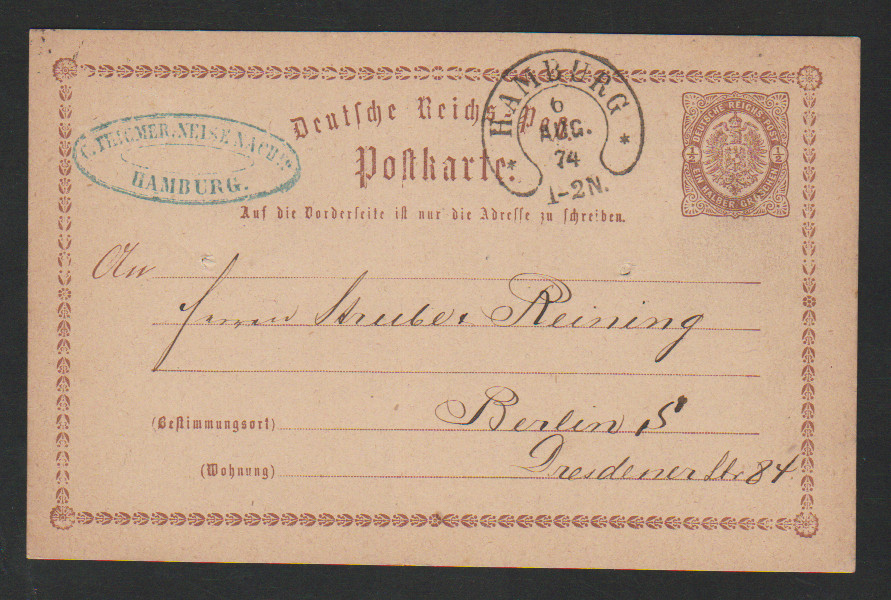 Deutsche Reichs-Post
Postkarte.
Auf die Vorderseite ist nur die Adresse zu schreiben.
NEISE NACHF.
HAMBURG.
HAMBURG
6
AUG.
74
1-2N.
DEUTSCHE REICHS-POST
1/2 1/2
EIN HALBER GROSCHEN
An
Herren Streibe & Reining
(Bestimmungsort) Berlin S
(Wohnung) Dresdener Str 84